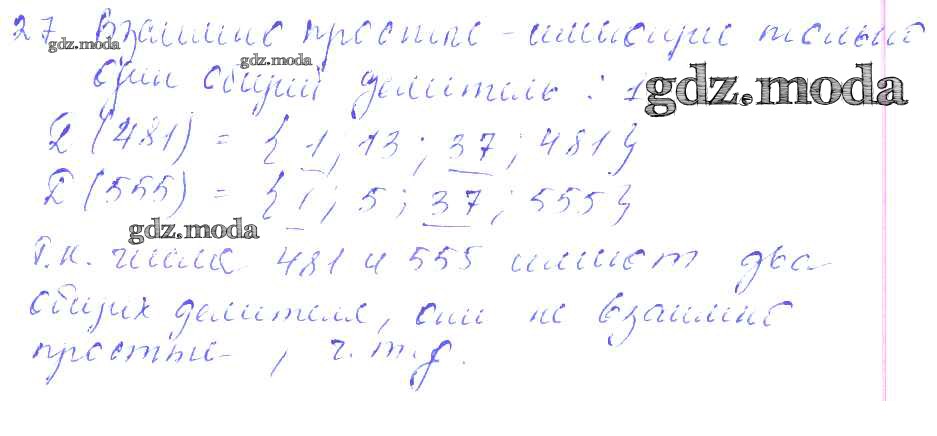 27 Взаимно простые - имеющие только
gdz.moda
gdz.moda
один общий делитель : 1
gdz.moda
D (481) = { 1 ; 13 ; 37 ; 481 }
D (555) = { 1 ; 5 ; 37 ; 555 }
gdz.moda
т.к. числа 481 и 555 имеют два
общих делителя, они не взаимно
простые , ч.т.д.